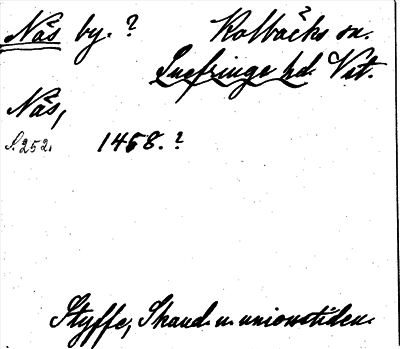 Näs by. ? Kolbäcks sn.
Snefringe hd. Vst.
Näs,
S. 252. 1468. ?
Styffe, Skand. u. unionstiden.